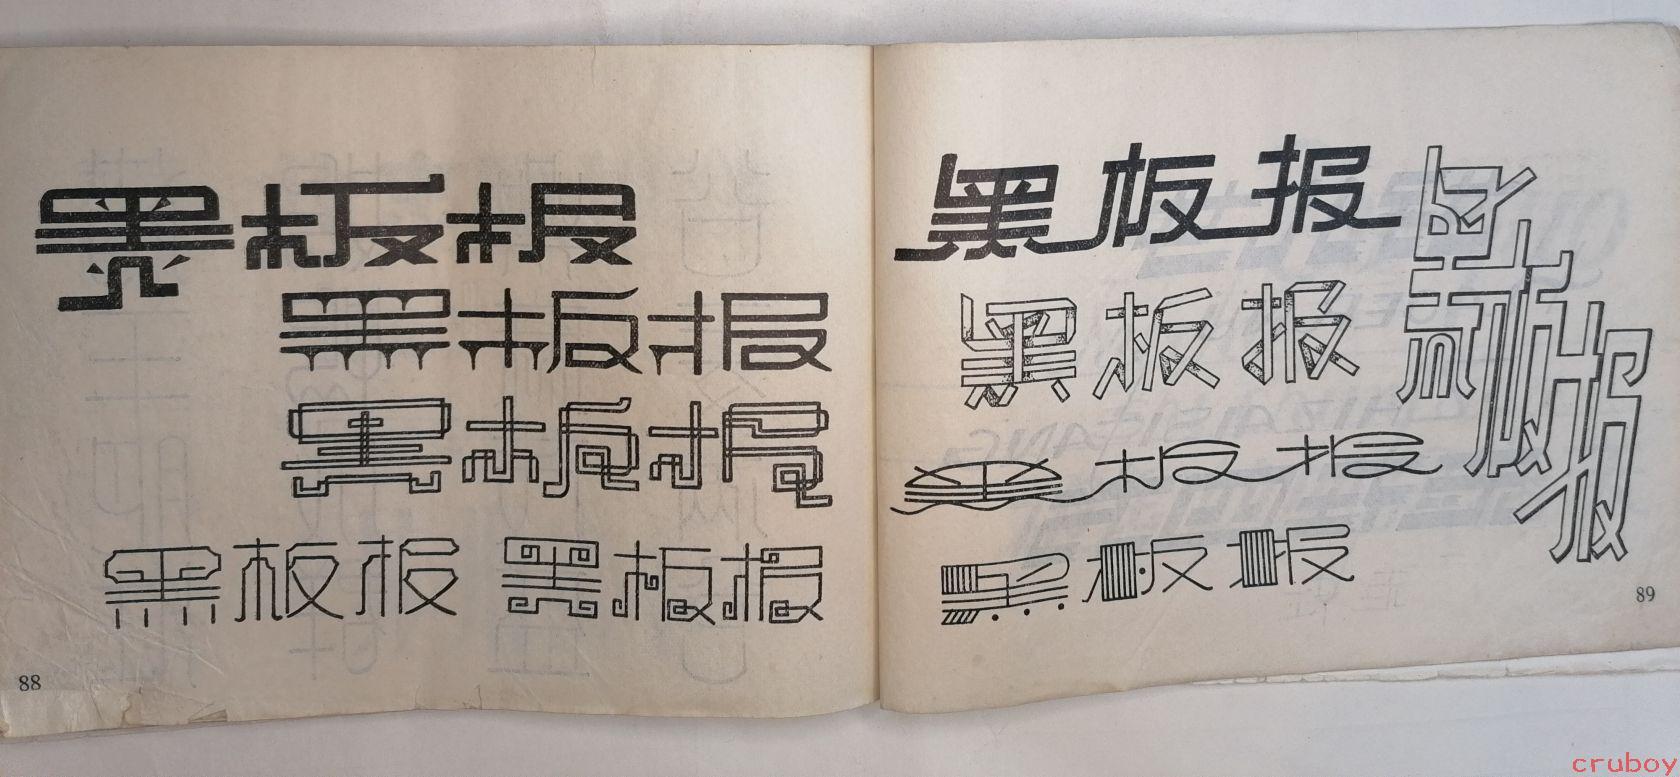 黑板报
黑板报
黑板报
黑板报 黑板报
88
黑板报
黑板报
黑板报
黑板报
黑板报
89
cruboy